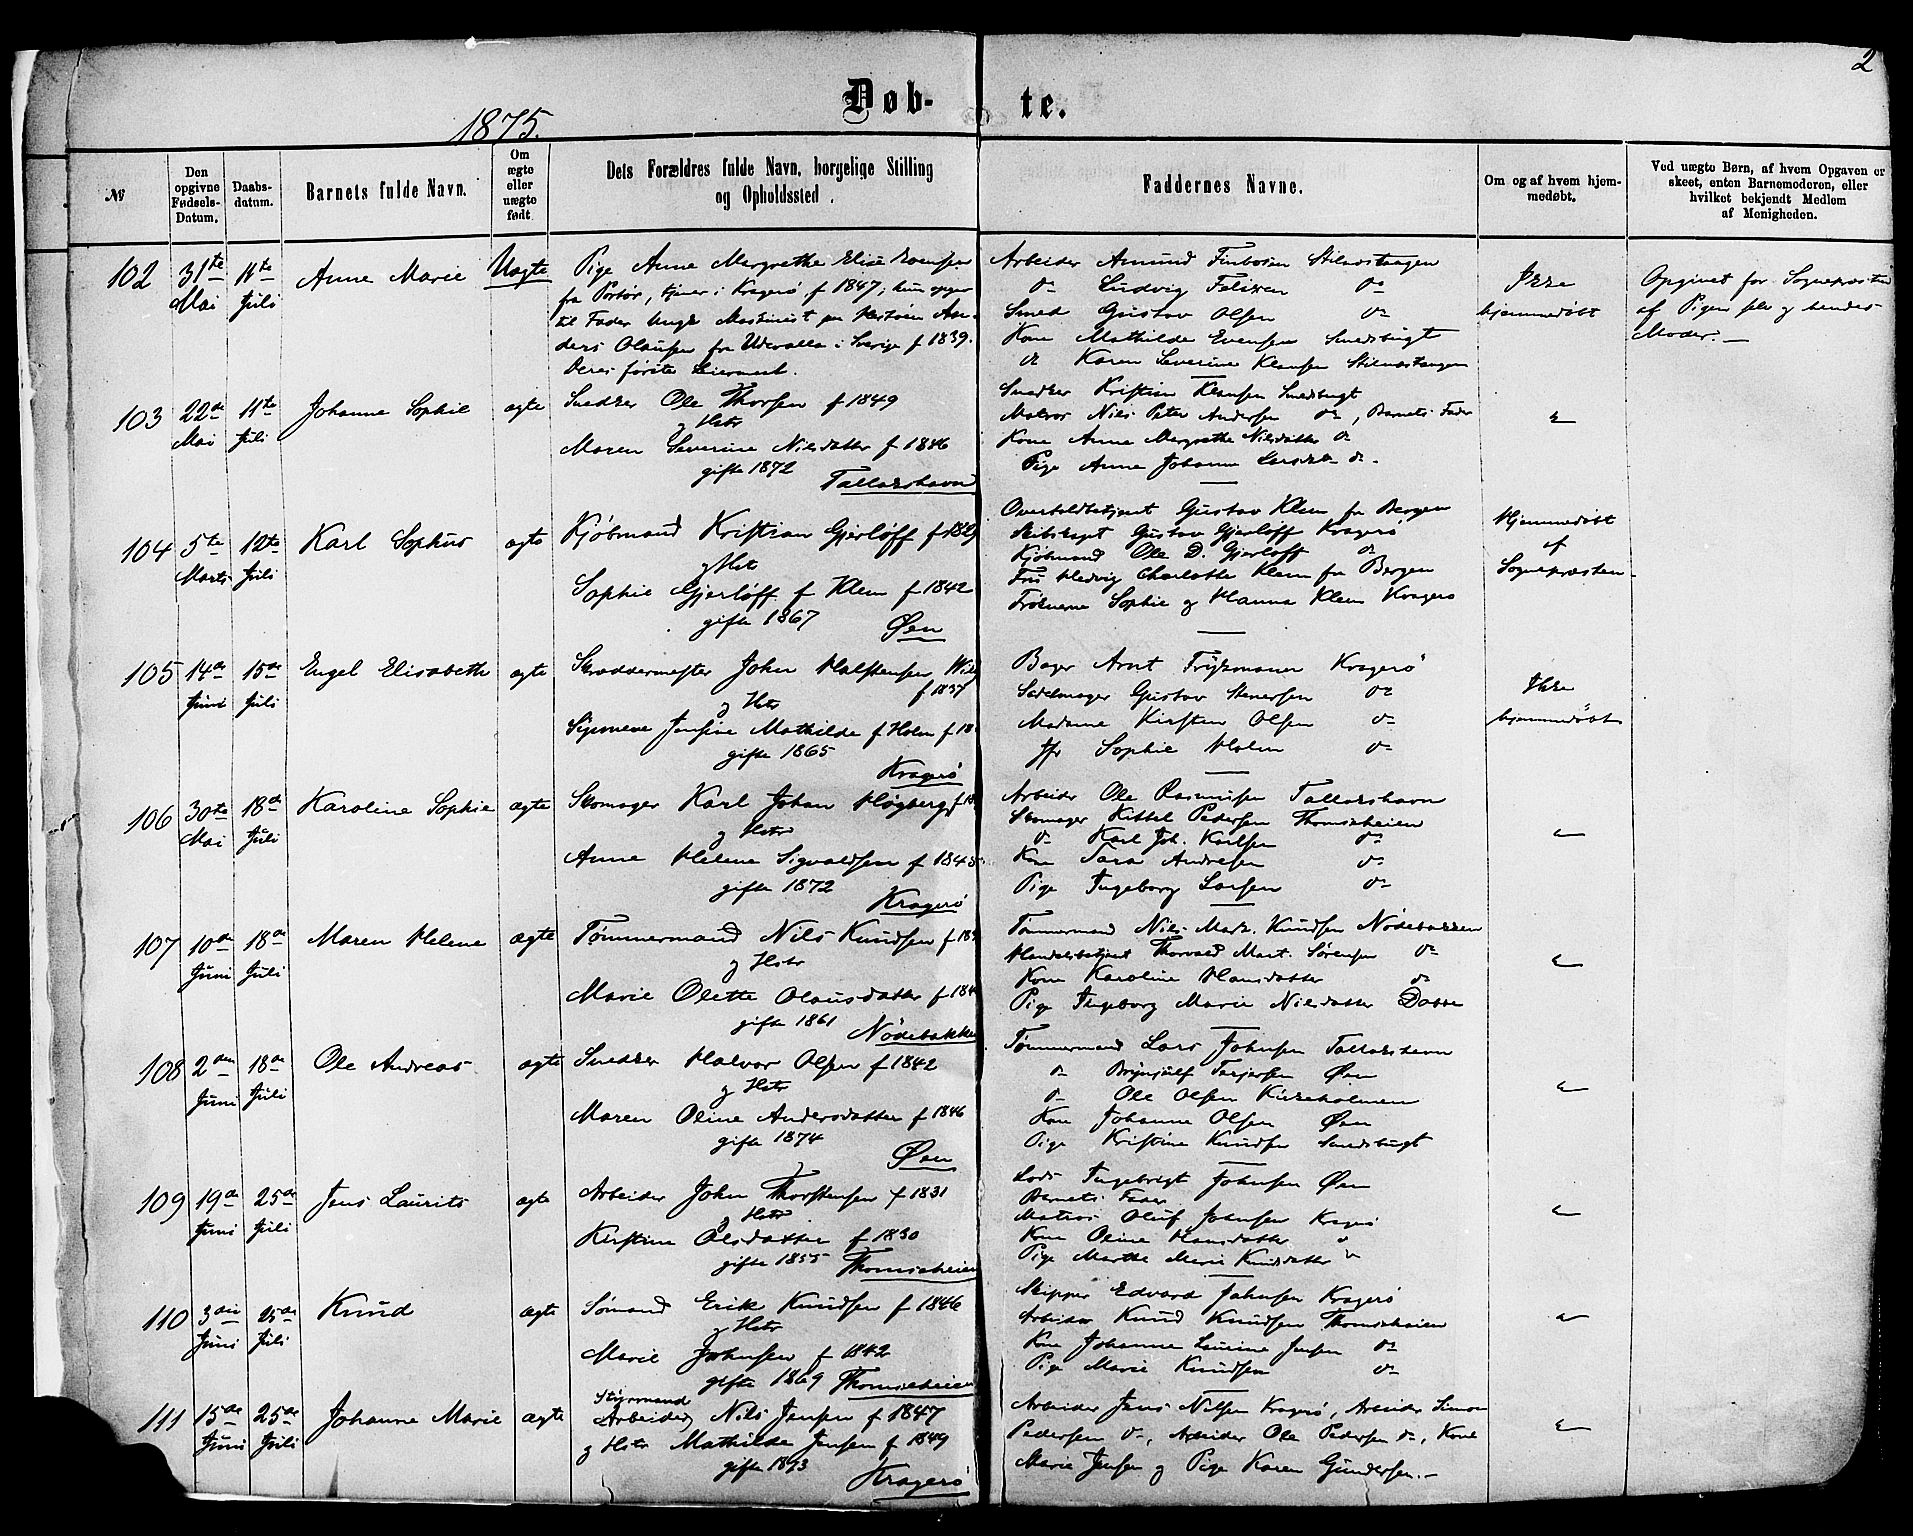 2
Døb- te.
1875.
№
Den opgivne Fødsels-Datum.
Daabs-datum.
Barnets fulde Navn.
Om ægte eller uægte født.
Dets Forældres fulde Navn, borgelige Stilling og Opholdssted.
Faddernes Navne.
Om og af hvem hjem-medøbt.
Ved uægte Børn, af hvem Opgaven er skeet, enten Barnemoderen, eller hvilket bekjendt Medlem af Menigheden.
102 31te Mai 11te Juli Anne Marie Uægte
Pige Anne Margrethe Elise
fra Portør, tjener i Kragerø f 1847; hun opger
til Fader Ungk Maskinist An-
ders Olausen fra Udevalla i Sverige f 1839.
Deres første Leiermaal.
Arbeider Amund Finbosen Stilnestangen
do Ludvig Felixen do
Smed Gustav Olsen do
Kone Mathilde Evensen Smedsbugt
do Karen Severine Klausen Stilnestangen
Ikke
hjemmedøbt
Opgivet for Sognepræsten
af Pigen selv og hendes
Moder.—
103 22de Mai 11te Juli Johanne Sophie ægte
Snedker Ole Thorsen f 1849
og Hstr
Maren Severine Nilsdatter f 1846
gifte 1872
Tallakshavn
Snedker Kristian Klausen Smedsbugt
Matros Nils Peter Andersen do, Barnets Fader
Kone Anne Margrethe Nilsdatter do
Pige Anne Johanne Larsen do.
104 5te Marts 12te Juli Karl Sophus ægte
Kjøbmand Kristian Gjerløff f 1829
og Hstr
Sophie Gjerløff f Klem f 1842
gifte 1867
Øen
Overtoldbetjent Gustav Klem fra Bergen
Skibskapt Gustav Gjerløff Kragerø
Kjøbmand Ole D. Gjerløff do
Fru Hedvig Charlotte Klem fra Bergen
Frøknerne Sophie og Hanna Klem Kragerø
Hjemmedøbt
af
Sognepræsten
105 14de Juni 15de Juli Engel Elisabeth ægte
Skræddermester John Halstensen
f 1837
og Hstr
Signeve Jensine Mathilde f Holm f 18
gifte 1865
Kragerø
Bager Arnt Trykmann Kragerø
Sadelmager Gustav Stenersen do
Madame Kirsten Olsen do
Jfr Sophie Holm do
Ikke
hjemmedøbt
106 30te Mai 18de Juli Karoline Sophie ægte
Skomager Karl Johan Høgberg f 18
og Hstr
Anne Helene Sigvaldsen f 1845
gifte 1872
Kragerø
Arbeider Ole Rasmusen Tallakshavn
Skomager Kittel Pedersen Thomeseheien
do Karl Joh. Karlsen do
Kone Tara Andresen do
Pige Ingeborg Larsen do
107 10de Juni 18de Juli Maren Helene ægte
Tømmermand Nils Knudsen f 18
og Hstr
Marie Olette Olausdatter f 184
gifte 1861
Nødebakken
Tømmermand Nils Mark. Knudsen Nødebakken
Handelsbetjent Thorvald Mart. Sørensen do
Kone Karoline Hansdatter do
Pige Ingeborg Marie Nilsdatter Dobbe
108 2den Juni 18de Juli Ole Andreas ægte
Snedker Halvor Olsen f 1842
og Hstr
Maren Oline Andersdatter f 1846
gifte 1874
Øen
Tømmermand Lars Johnsen Tallakshavn
do Brynjulf Terjersen Øen
do Ole Olsen Kirkeholmen
Kone Johanne Olsen Øen
Pige Kristine Knudsen Smedsbugt
109 19de Juni 25de Juli Jens Laurits ægte
Arbeider John Thorstensen f 1831
og Hstr
Kirstine Olsdatter f 1830
gifte 1855
Thomeseheien
Lods Ingebrigt Johnsen Øen
Barnets Fader
Matros Oluf Johnsen Kragerø
Kone Oline Hansdatter do
Pige Marthe Marie Knudsdatter do
110 3die Juni 25de Juli Knud ægte
Sømand Erik Knudsen f 1846
og Hstr
Marie Johnsen f 1842
gifte 1869 Thomeseheien
Skipper Edvard Johnsen Kragerø
Arbeider Knud Knudsen Thomeseheien
Kone Johanne Laurine Jensen do
Pige Marie Knudsen do
111 15de Juni 25de Juli Johanne Marie ægte
Styrmand
(Arbeider) Nils Jensen f 1847
og Hstr Mathilde Jensen f 1849
gifte 1873
Kragerø
Arbeider Jens Nilsen Kragerø, Arbeider Simon
Pedersen do, Arbeider Ole Pedersen do, Kone
Marie Jensen og Pige Karen Gundersen.—